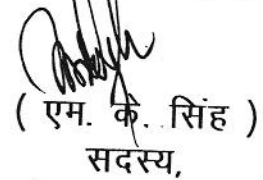 ( एम. के. सिंह )
सदस्य,